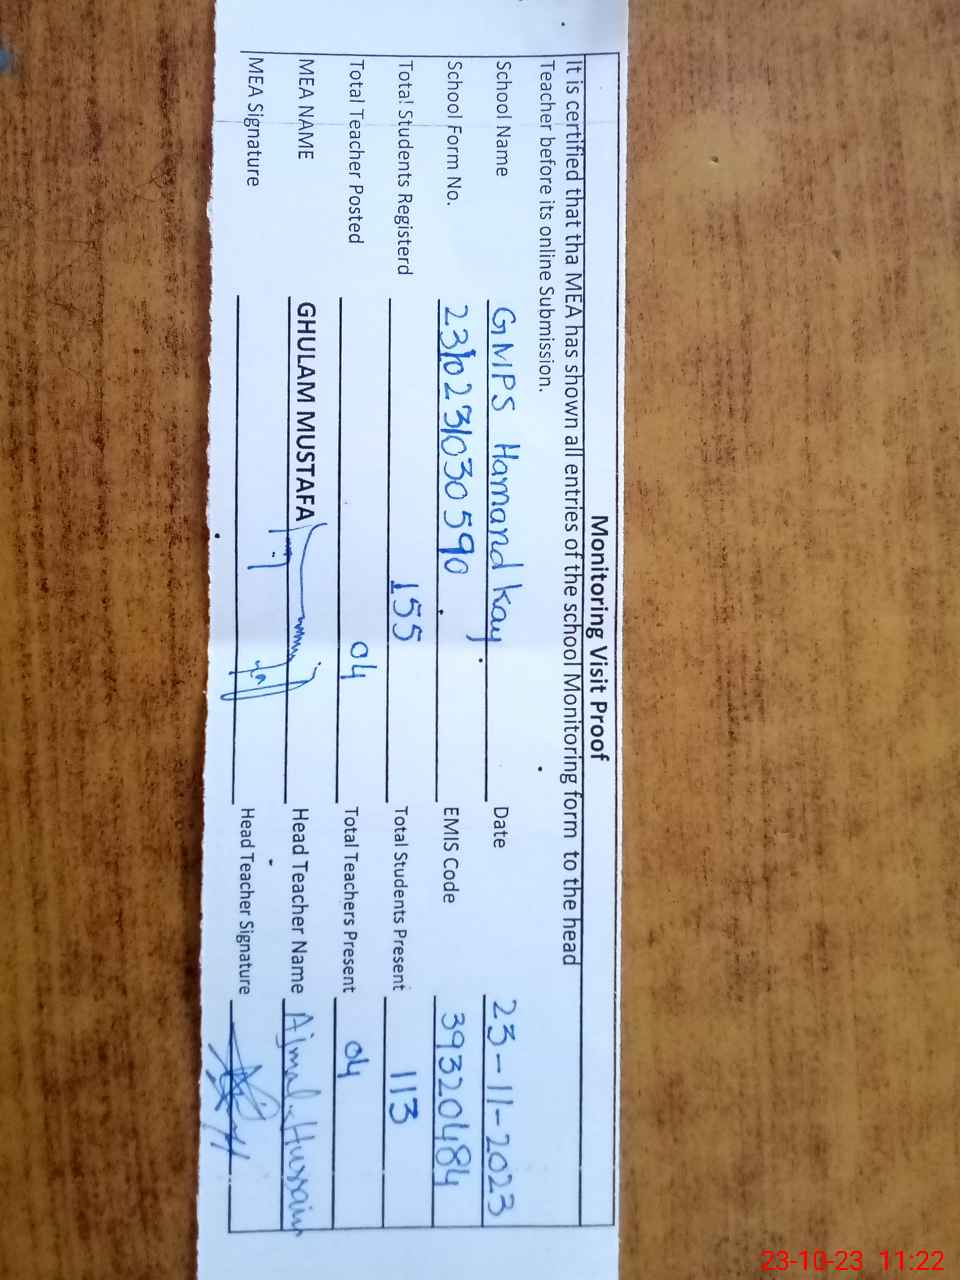 Monitoring Visit Proof
It is certified that tha MEA has shown all entries of the school Monitoring form to the head
Teacher before its online Submission.
School Name GMPS Hamand Kay Date 23-11-2023
School Form No. 231023103 0590 EMIS Code 39320484
Total Students Registerd 155 Total Students Present 113
Total Teacher Posted 04 Total Teachers Present 04
MEA NAME GHULAM MUSTAFA Head Teacher Name Ajmal Hussain
MEA Signature Head Teacher Signature
23-10-23 11:22